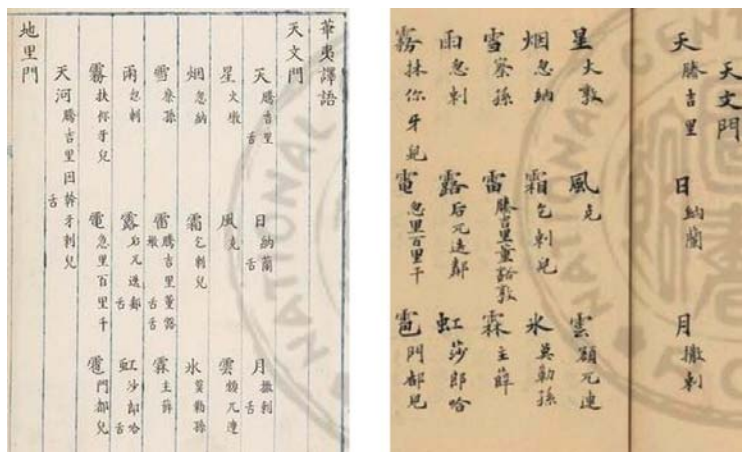 華夷譯語
天文門
天 騰吉里舌 日 納蘭舌 月 撒剌舌
星 火墩 風 克 雲 額兀連
烟 忽納 霜 乞剌兒 氷 莫勒孫
雪 察孫 雷 騰吉里董豁墩舌舌 霖 主薛
雨 忽剌 露 兀迭鄰舌 虹 沙郎哈舌
霧 扶你牙兒 電 急里百里干 雹 門都兒
天河 騰吉里因幹牙剌兒舌
地里門
天文門
天 騰吉里 日 納蘭 月 撒剌
星 火敦 風 克 雲 額兀連
烟 忽納 霜 乞剌兒 氷 莫勒孫
雪 察孫 雷 騰吉里董豁敦 霖 主薛
雨 忽剌 露 后兀迭鄰 虹 莎郎哈
霧 抹你牙兒 電 忽里百里干 雹 門都兒
NATIONAL
NATIONAL